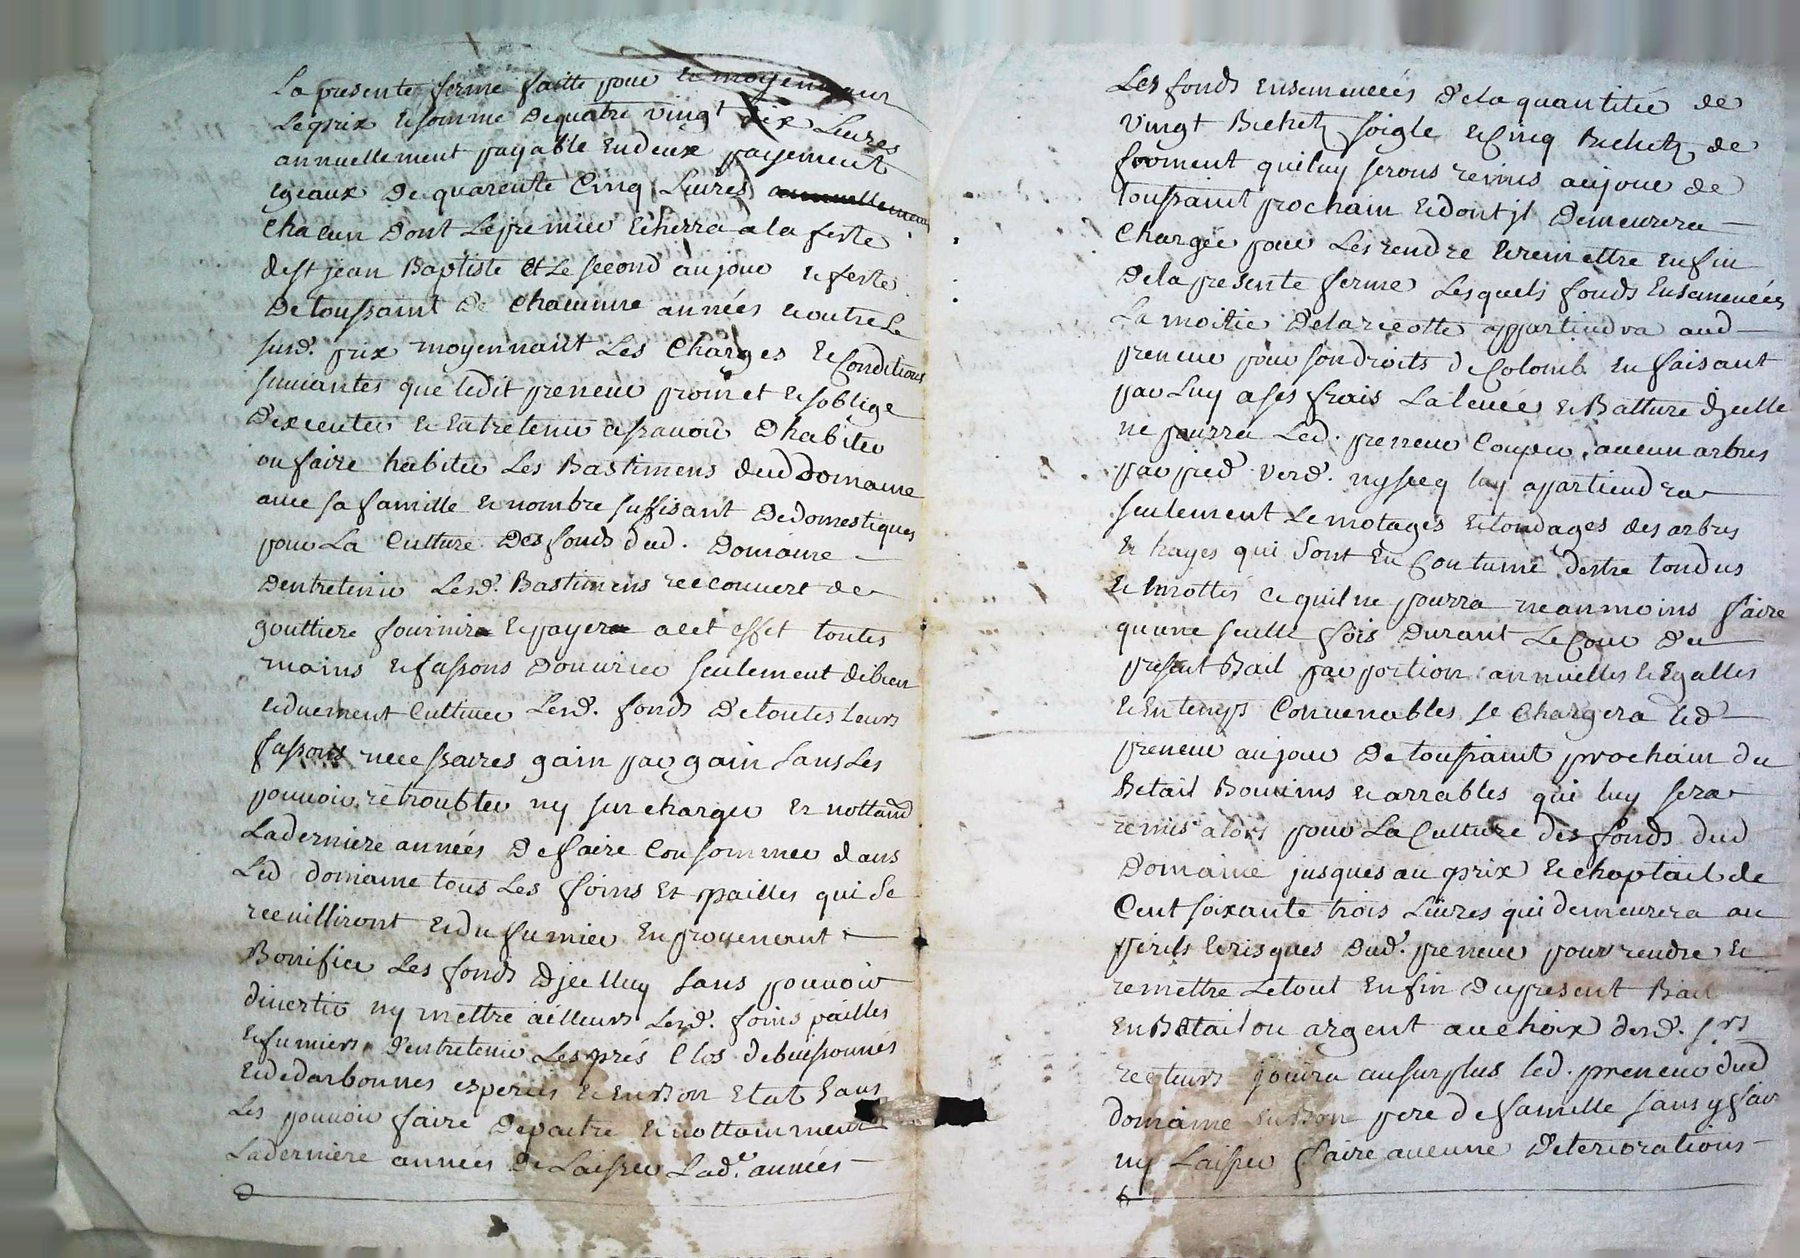 La presente ferme faitte pour & moyennant
Le prix & somme de quatre vingt dix Livres
annuellement payable en deux payement
egeaux de quarente Cinq Livres annuellement
Chacun dont Le premier Echerra a la feste
de st jean Baptiste Et Le second au jour & feste
de toussaint de chacunne années & outre Le
susd. prix moyennant Les Charges & Conditions
suiuantes que ledit preneur promet & soblige
dexecuter & Entretenir assauoir dhabiter
ou faire habiter Les Bastimens dud Domaine
auec sa famille & nombre suffisant de domestiques
pour La Culture des fonds dud. Domaine
dentretenir Lesd. Bastimens recouvert de
gouttiere fournira & payera a cet effet toutes
mains & fassons douurier seulement de bien
& duement Cultiuer Lesd. fonds de toutes leurs
fassons necessaires gain par gain sans Les
pouuoir retroubler ny surcharger & nottand
La derniere années de faire Consommer dans
Led domaine tous Les foins Et pailles qui se
recuilliront & du fumier En prouenant
Bonifier Les fonds djcelluy sans pouuoir
diuertir ny mettre ailleurs Lesd. foins pailles
& fumiers dentretenir Les prés Clos debuissonnés
& dedarbonnes esperces & en Bon Etat sans
Les pouuoir faire depaitre & nottamment
La derniere années de Laisser Lad. années
Les fonds Ensemencés de la quantitée de
vingt Bichetz soigle & Cinq Bichetz de
froment qui luy serons remis au jour de
toussaint prochain & dont jl demeurera
Chargée pour Les rendre & remettre en fin
de la presente ferme Lesquels fonds Ensemencés
La moitie de la recotte appartiendra aud
preneur pour son droits de Colomb En faisant
par Luy a ses frais La leuée & Batture djcelle
ne pourra Led. preneur Couper aucun arbres
par pied verd. ny secq luy appartiendra
seulement Le motages & tondages des arbres
& hayes qui sont En Coutume destre tondus
& Emottés ce quil ne pourra neanmoins faire
quune seulle fois durant Le Cour du
present Bail par portion annuelles & Egalles
& En temps Conuenables se Chargera led
preneur au jour de toussaint prochain du
Betail Bouuins & arrables qui luy sera
remis alors pour La Culture des fonds dud
Domaine jusques au prix & chaptail de
Cent soixante trois Livres qui demeurera au
perils & risques dud. preneur pour rendre &
remettre Le tout En fin du present Bail
en Betail ou argent au choix desd. srs
recteurs jouira au surplus led. preneur dud
domaine en Bon pere de famille sans y fair
ny Laisser faire aucune deteriorations